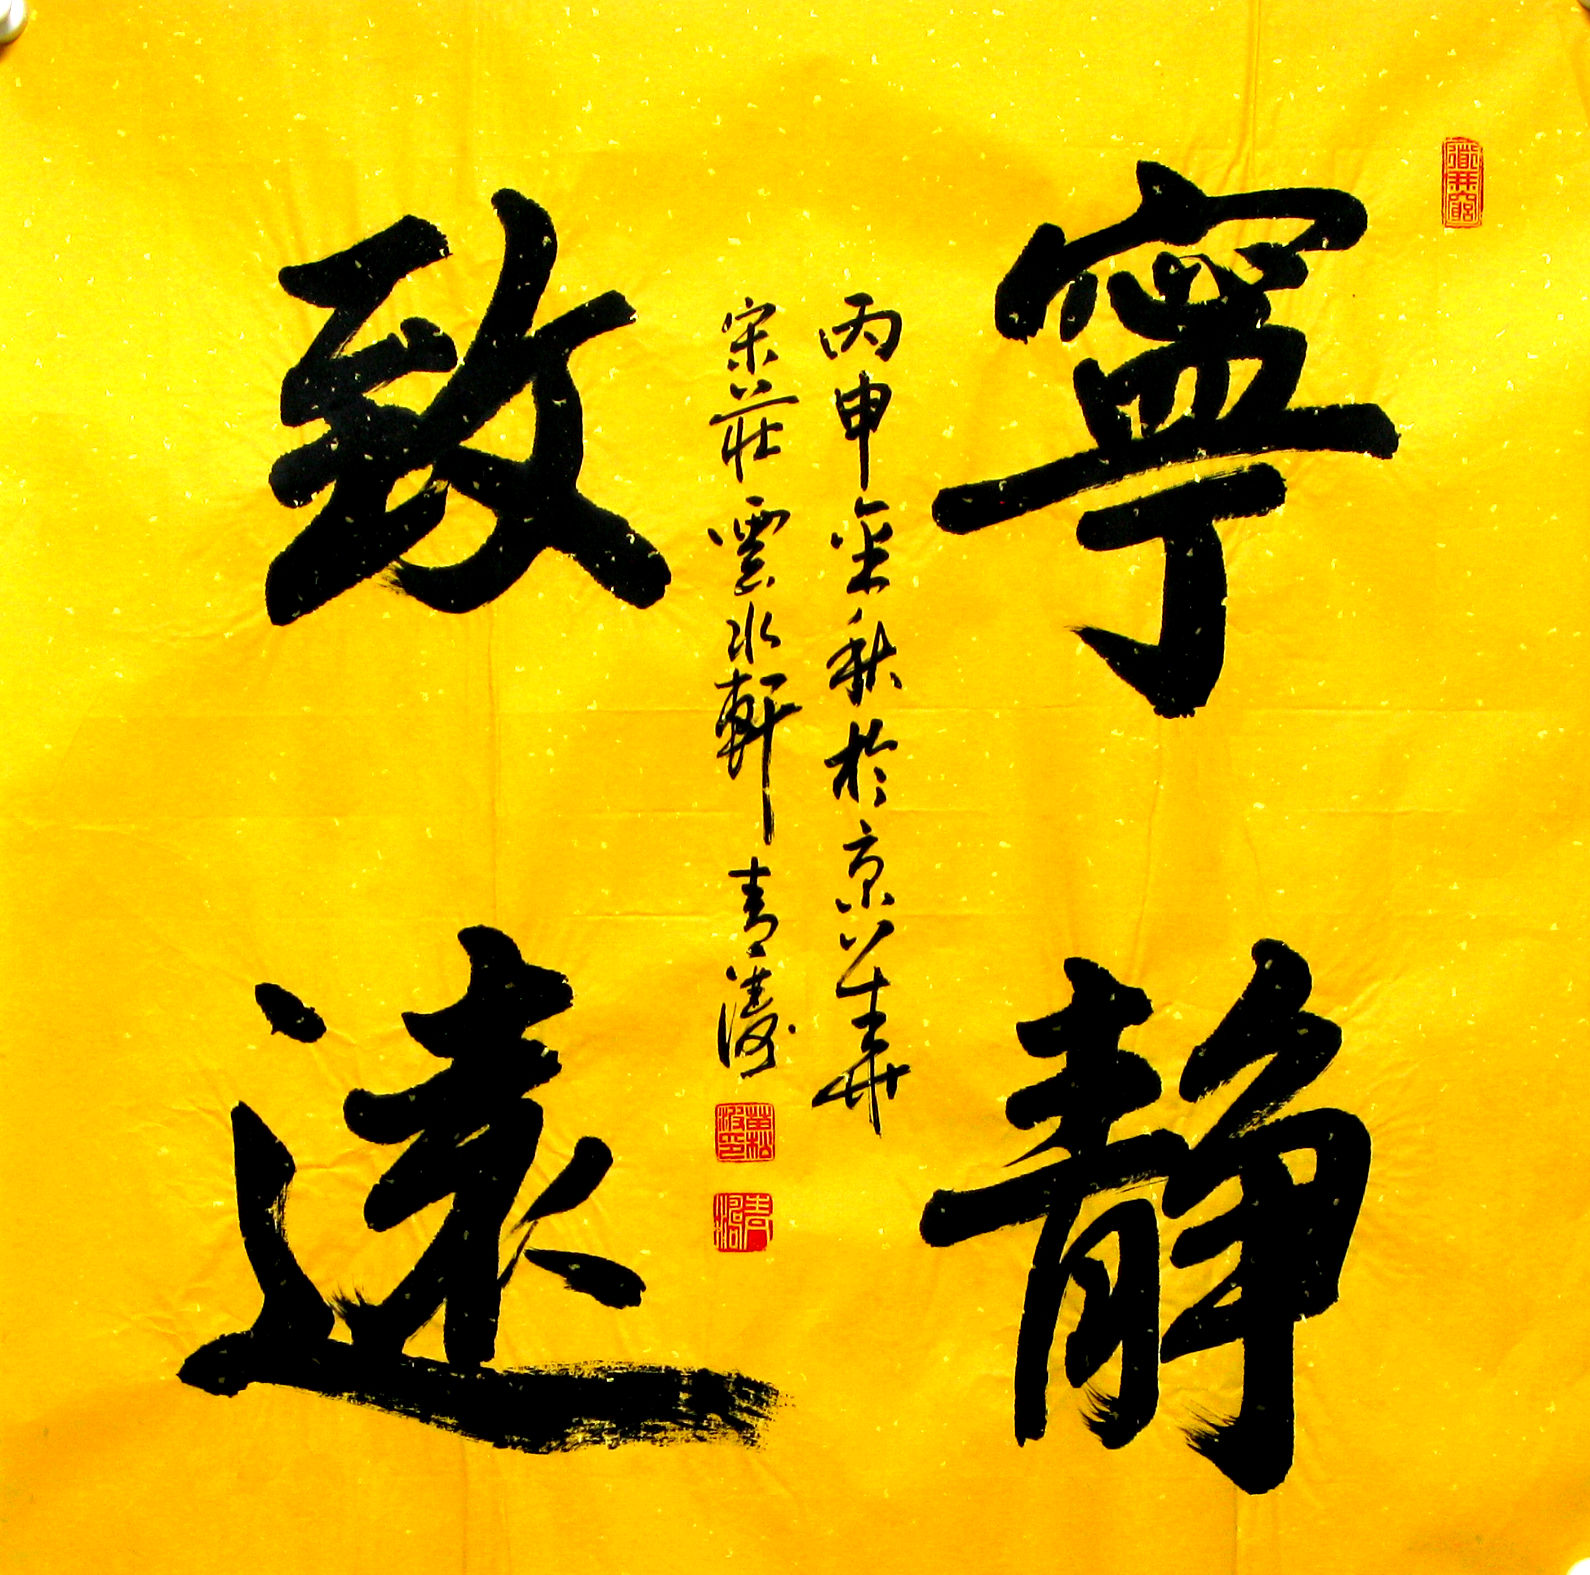 寧靜
致遠
丙申金秋於京華
宋莊雲水軒青濤